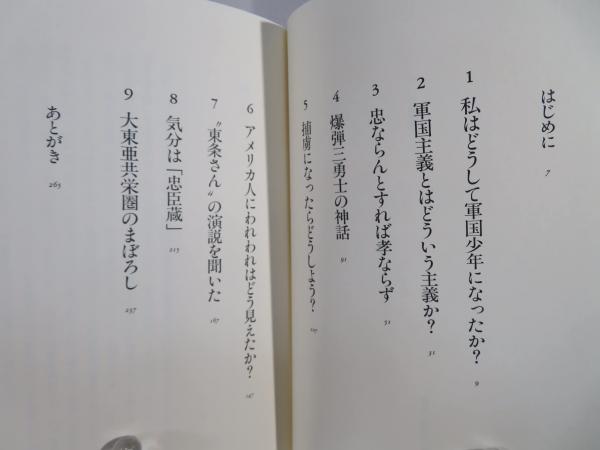 はじめに 7
1 私はどうして軍国少年になったか? 9
2 軍国主義とはどういう主義か? 31
3 忠ならんとすれば孝ならず 51
4 爆弾三勇士の神話 91
5 捕虜になったらどうしよう?
6 アメリカ人にわれわれはどう見えたか? 147
7 〝東条さん〟の演説を聞いた 167
8 気分は「忠臣蔵」 215
9 大東亜共栄圏のまぼろし 237
あとがき 263